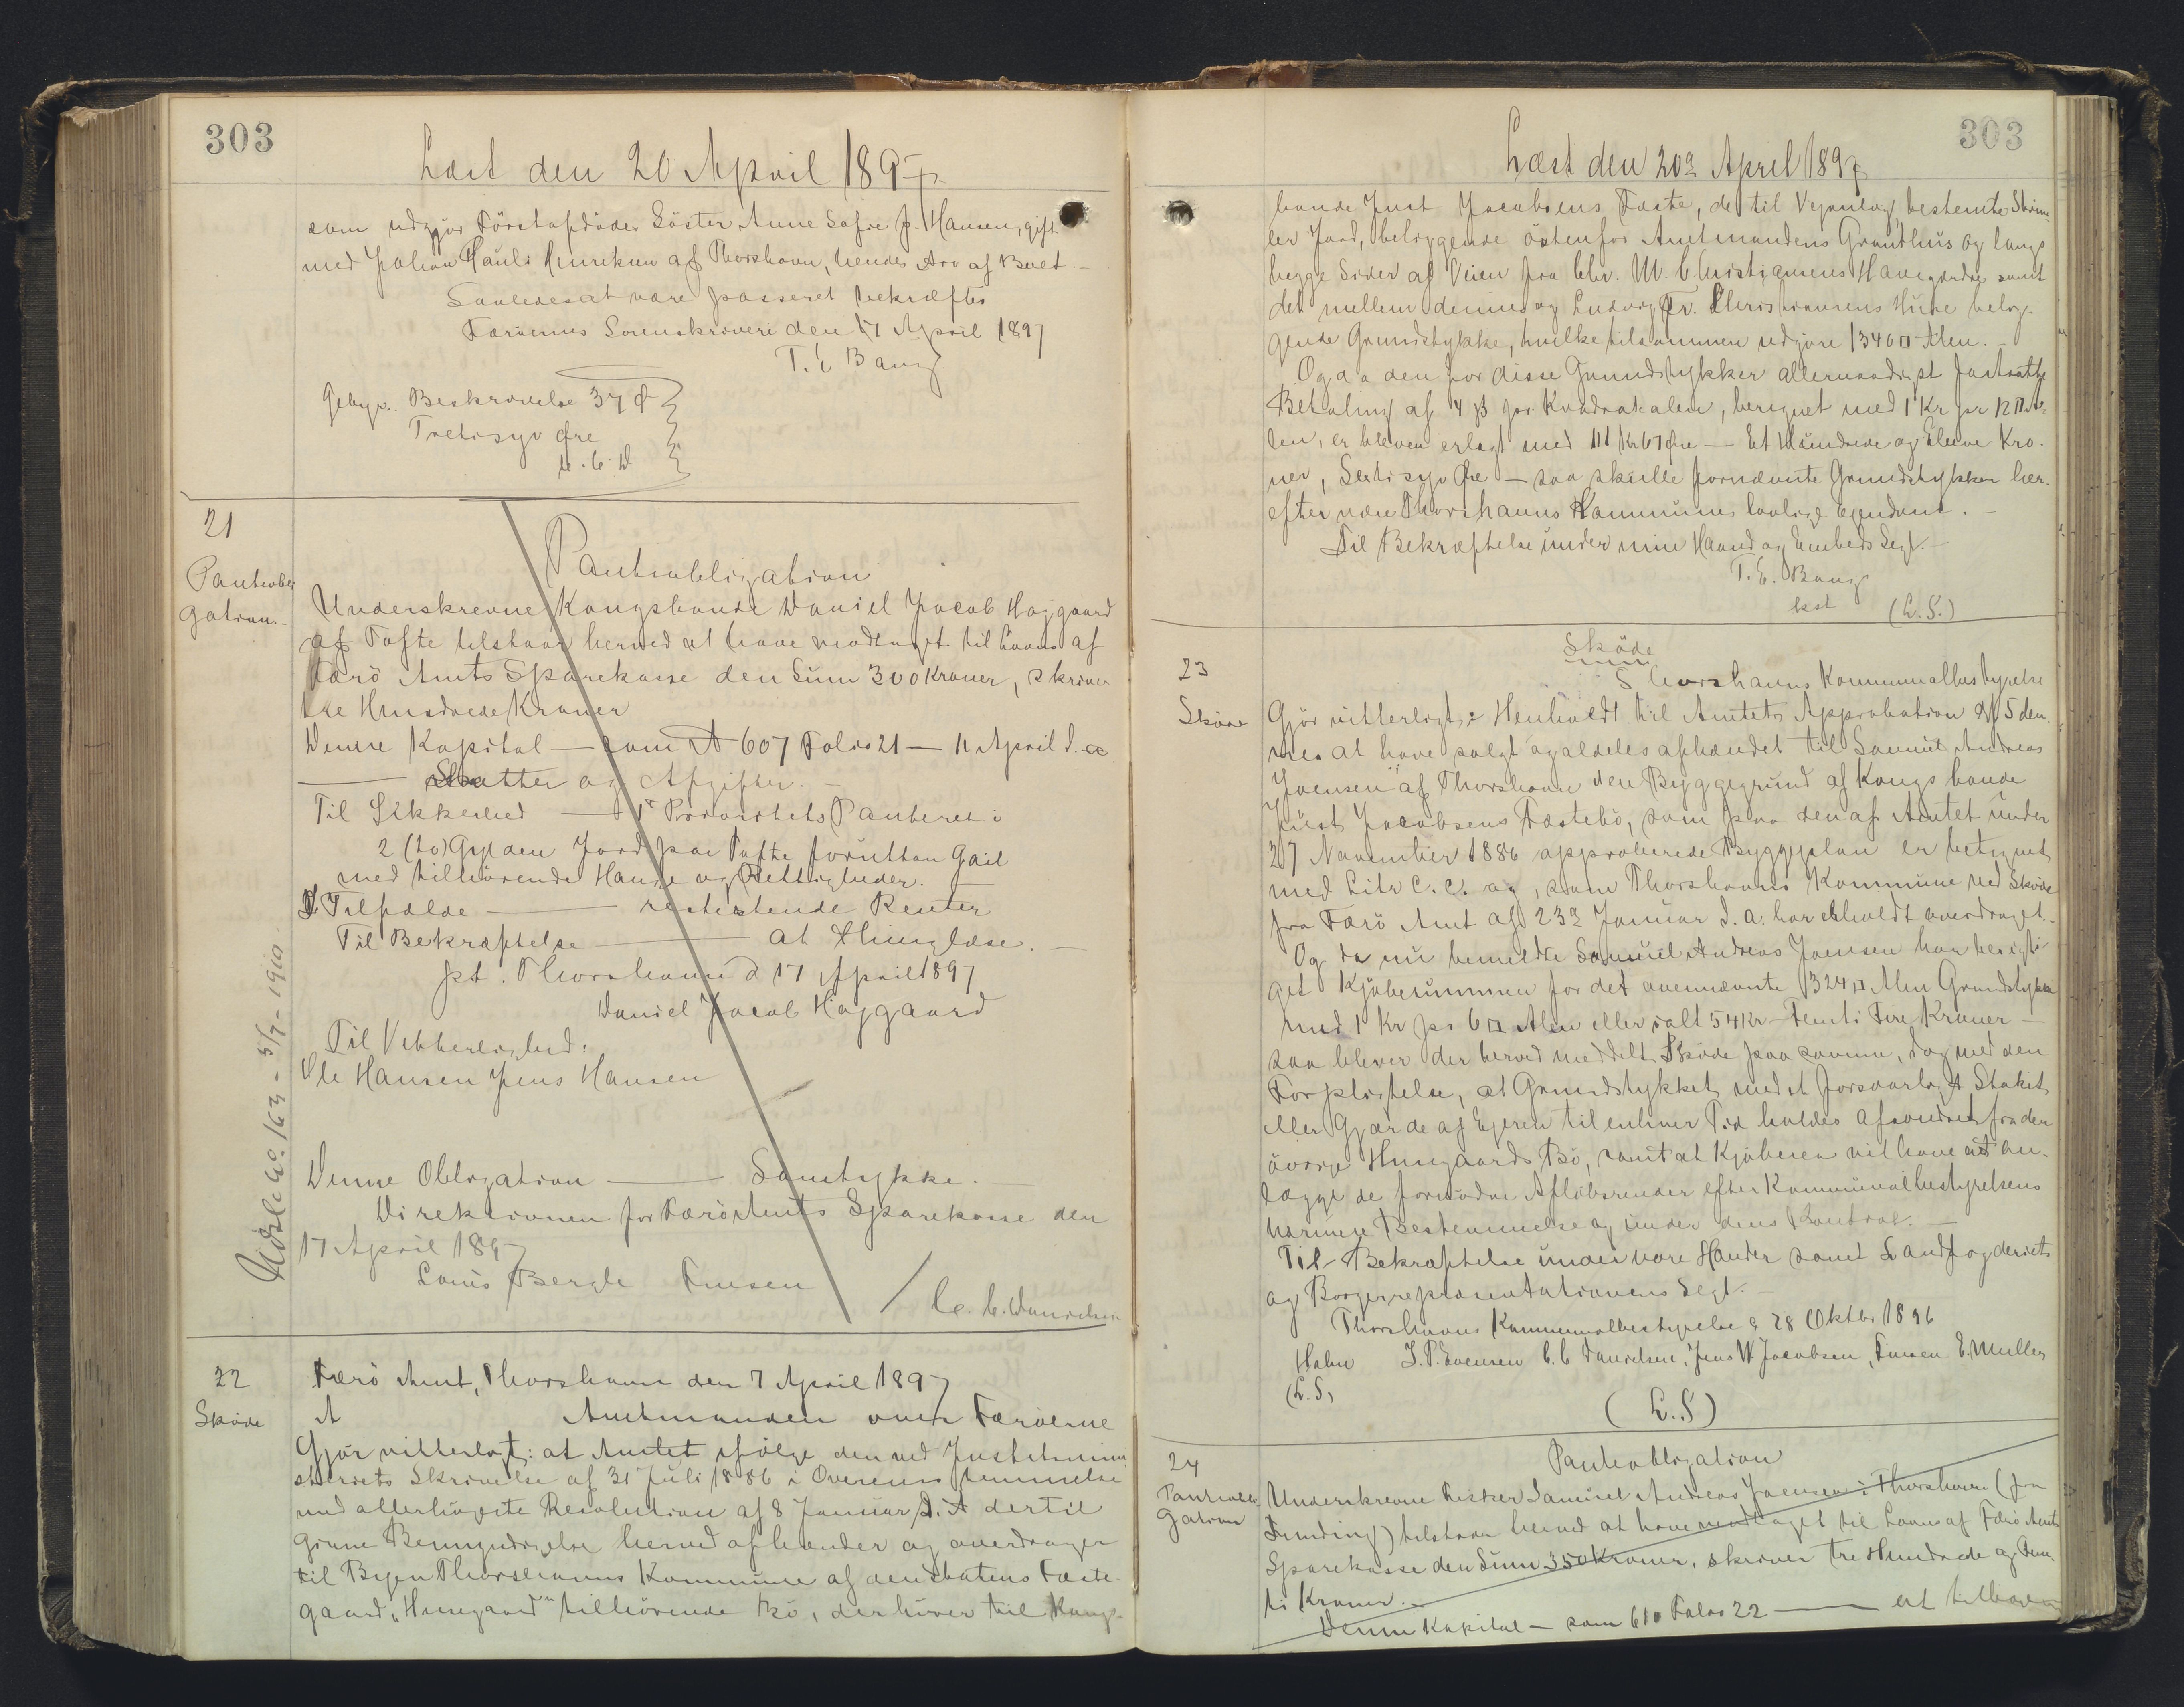 303
Læst den 20 April 1897
som udgjør Förstafdödes Söster Anne Sofie J. Hansen, gift
med Johan Pauli Henriksen af Thorshavn, hendes Arv af Boet.
Saaledes at være passeret bekræftes
Færöernes Sorenskriveri den 17 April 1897
T. C Bang
Gebyr. Beskrivelse 37 Ø
Tretisyv Øre
C. C. D
21
Pantobli
gation.
Pantobligation
Underskrevne Kongsbonde Daniel Jacob Højgaard
af Tofte tilstaar herved at have modtaget til Laans af
Færö Amts Sparekasse den Sum 300 Kroner, skriver
tre Hundrede Kroner
Denne Kapital — som A 607 Folio 21 — 11 April d. a
— Skatter og Afgifter.
Til Sikkerhed — 1ste Prioritets Panteret i
2 (to) Gylden Jord paa Tofte foruthan Gail
med tilhörende Hauge og Rettigheder.
I Tilfælde — resterende Renter
Til Bekræftelse — at thinglæse.
pt. Thorshavn d 17 April 1897
Daniel Jacob Højgaard
Til Vitterlighed:
Ole Hansen Jens Hansen
Denne Obligation — Samtykke.
Direktionen for Færö Amts Sparekasse den
17 April 1897
Louis Bergh Finsen / C. C. Danielsen
Udslettet No. 163 - 5/7 - 1910.
22
Sköde
Færö Amt, Thorshavn den 7 April 1897
A Amtmanden over Færöerne
Gjör vitterligt: at Amtet ifölge den ved Justitsmini
steriets Skrivelse af 31 Juli 1886 i Overensstemmelse
med allerhöieste Resolution af 8 Januar s. A dertil
givne Bemyndigelse herved afhænder og overdrager
til Byen Thorshavns Kommune af den Statens Fæste
gaard "Hunegaard" tilhörende Bö, der hörer til Kongs-
303
Læst den 20de April 1897
bonde Just Jacobsens Fæste, det til Vejanlæg bestemte Strim-
ler Jord, beliggende östenfor Amtmandens Grundhus og langs
begge Sider af Veien fra Chr. M. Christiansens Havegjærde samt
det mellem denne og Ludvig Fr. Christiansens Huse belig-
gende Grundstykke, hvilke tilsammen udgjöre 1340 □ Alen.
Og da den for disse Grundstykker allernaadigst fastsatte
Betaling af 4 β pr. Kvadratalen, beregnet med 1 Kr pr 12 □ A-
len, er bleven erlagt med 111 Kr 67 Øre — Et Hundrede og Elleve Kro-
ner, Sextisyv Øre — saa skulle fornævnte Grundstykker her-
efter være Thorshavns Kommunes lovlige Ejendom.
Til Bekræftelse under min Haand og Embeds Segl.
T. C. Bang
kst (L. S.)
23
Sköde
Sköde
Thorshavns Kommunalbestyrelse
Gjör vitterligt: i Henhold til Amtets Approbation af 5 den-
nes at have solgt og aldeles afhændet til Samuel Andreas
Joensen af Thorshavn den Byggegrund af Kongsbonde
Just Jacobsens Fæstebö, som paa den af Amtet under
27 November 1886 approberede Byggeplan er betegnet
med Litr C. c. og, som Thorshavns Kommune ved Sköde
fra Færö Amt af 23de Januar d. a. har erholdt overdraget.
Og da nu bemeldte Samuel Andreas Joensen har berigti-
get Kjöbesummen for det ovennævnte 324 □ Alen Grundstykke
med 1 Kr pr 6 □ Alen eller ialt 54 Kr - Femti Fire Kroner -
saa bliver der herved meddelt Sköde paa samme, dog med den
Forpligtelse, at Grundstykket med et forsvarligt Staket
eller Gjærde af Ejeren til enhver Tid holdes afsondret fra den
övrige Hunegaards Bö, samt at Kjöberen vil have at an-
lægge de fornödne Aflöbsrender efter Kommunalbestyrelsens
nærmere Bestemmelse og under dens Kontrol.
Til Bekræftelse under vore Hænder samt Landfogderiets
og Borgerrepræsentationens Segl.
Thorshavns Kommunalbestyrelse d 28 Oktbr 1896
Hahn J. P. Evensen C. C Danielsen, Jens W. Jacobsen, Finsen E. Müller
(L. S)
(L. S)
24
Pantobli
gation
Pantobligation
Underskrevne Fisker Samuel Andreas Joensen i Thorshavn (fra
Funding) tilstaar herved at have modtaget til Laans af Færö Amts
Sparekasse den Sum 350 Kroner, skriver tre Hundrede og Fem-
ti Kroner.
Denne Kapital — som 610 Folio 22 — at tilbage